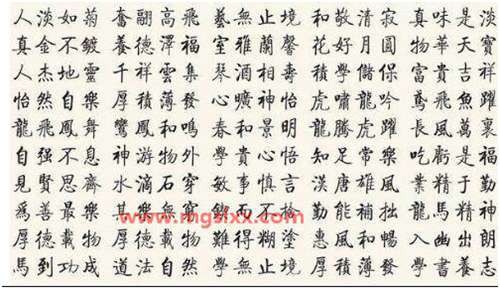 人淡如菊 奮翮高飛 藝無止境 和敬清寂 真味是淡
真金不鍍 養德澤福 室雅蘭馨 花好月圓 物華天寶
人杰地靈 千祥雲集 琴酒相壽 積學儲保 富貴吉祥
怡然自樂 厚積薄發 心曠神怡 虎嘯龍吟 鳶飛魚躍
龍飛鳳舞 鸞鳳和鳴 春和景明 龍騰虎躍 長風萬裏
自强不息 神游物外 學貴心悟 知足常樂 吃虧是福
見賢思齊 水滴石穿 敏事慎言 漢唐雄風 業精于勤
爲善最樂 其樂無窮 不捨 勤能補拙 龍馬精神
www.mgslxx.com
厚德載物 厚德載物 難得糊塗 惠風和暢 入幽出朗
馬到功成 道法自然 學無止境 厚積薄發 學書養志